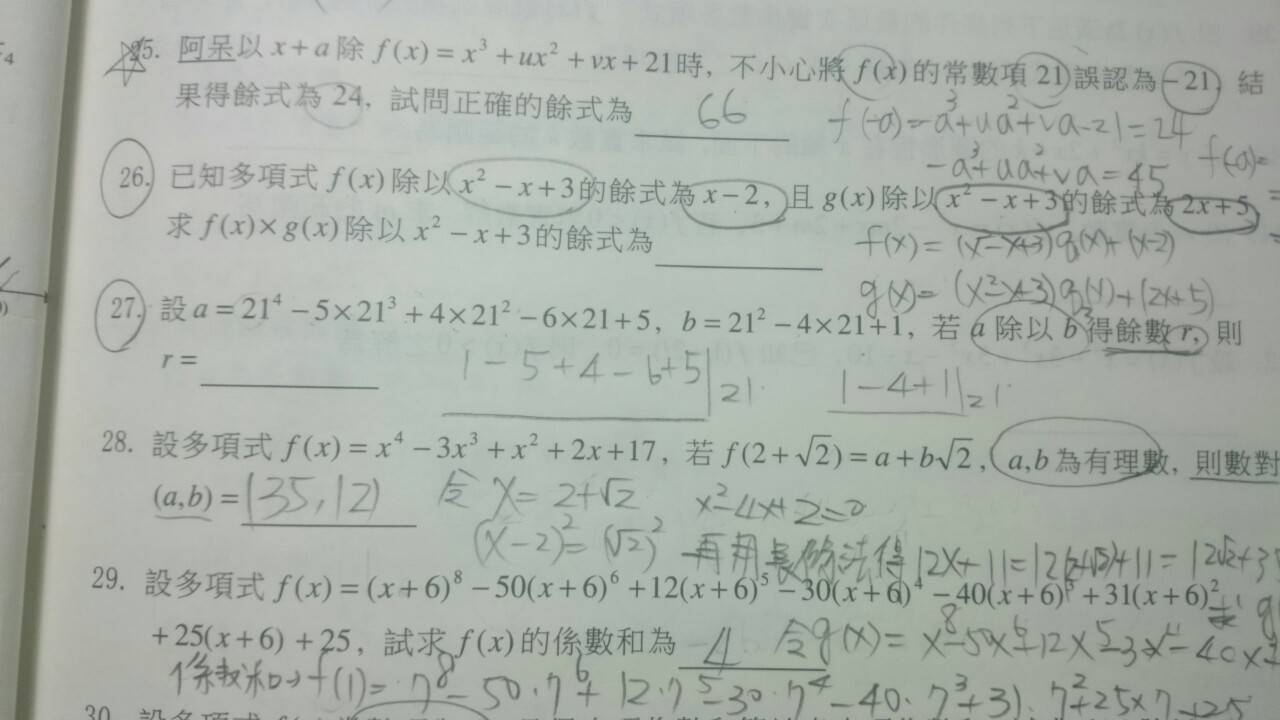 25. 阿呆以 x+a 除 f(x)=x³+ux²+vx+21時，不小心將 f(x)的常數項21誤認為−21，結
果得餘式為24，試問正確的餘式為 66
f(-a)=-a³+ua²+va-21=24
-a³+ua²+va=45 f(-a)=
26. 已知多項式 f(x)除以 x²−x+3的餘式為 x−2，且 g(x)除以 x²−x+3的餘式為2x+5，
求 f(x)×g(x)除以 x²−x+3的餘式為
f(x)=(x²-x+3)q(x)+(x-2)
g(x)=(x²-x+3)q(x)+(2x+5)
27. 設a=21⁴−5×21³+4×21²−6×21+5，b=21²−4×21+1，若 a除以 b 得餘數 r，則
r=
1-5+4-6+5|21 1-4+1|=21
28. 設多項式 f(x)=x⁴−3x³+x²+2x+17，若 f(2+√2)=a+b√2，a,b為有理數，則數對
(a,b)=(35,12) 令 x=2+√2 x²-4x+2=0
(x-2)²=(√2)² 再用長除法得 12x+11=12(2+√2)+11=12√2+3
29. 設多項式 f(x)=(x+6)⁸−50(x+6)⁶+12(x+6)⁵−30(x+6)⁴−40(x+6)³+31(x+6)²
+25(x+6)+25，試求 f(x)的係數和為 4 令g(x)=x⁸-50x⁶+12x⁵-3x⁴-40x
係數和→f(1)=7⁸-50·7⁶+12·7⁵-30·7⁴-40·7³+31·7²+25×7+25
30. 設多項式